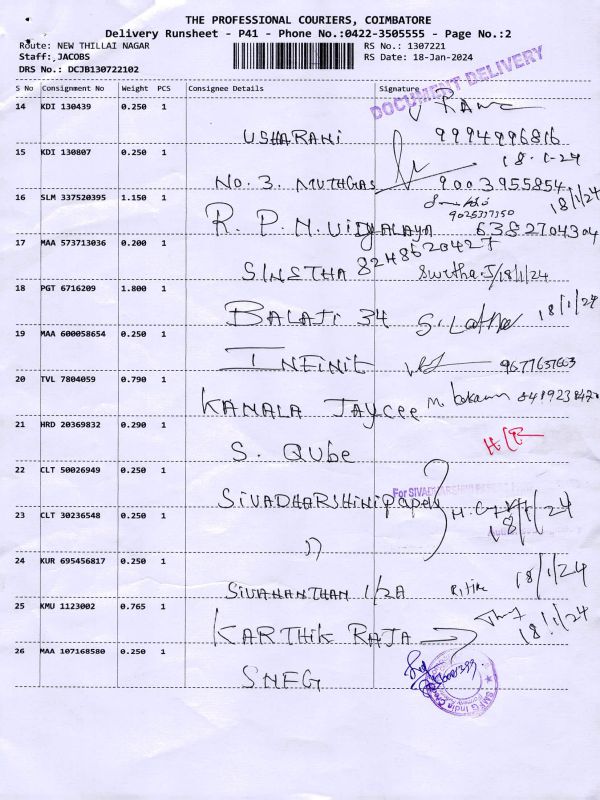 THE PROFESSIONAL COURIERS, COIMBATORE
Delivery Runsheet - P41 - Phone No.:0422-3505555 - Page No.:2
Route: NEW THILLAI NAGAR RS No.: 1307221
Staff: JACOBS RS Date: 18-Jan-2024
DRS No.: DCJB130722102
DOCUMENT DELIVERY
S No Consignment No Weight PCS Consignee Details Signature
14 KDI 130439 0.250 1 USHARANI 9994996816
15 KDI 130807 0.250 1 NO. 3. MUTHGAS 18-1-24 9003955854
16 SLM 337520395 1.150 1 R. P. N. VIDYALAYA 9025337350 18/1/24 6382704304
17 MAA 573713036 0.200 1 SINSTHA 8248620427 Swetha.J/18/1/24
18 PGT 6716209 1.800 1 BALAJI 34 S. Latha 18/1/24
19 MAA 600058654 0.250 1 INFINIT 9677637663
20 TVL 7804059 0.790 1 KANALA JAYCEE
21 HRD 20369832 0.290 1 S. QUbe
22 CLT 50026949 0.250 1 SIVADHARSHINI papers 18/1/24
For SIVADHARSHINI
23 CLT 30236548 0.250 1 "
24 KUR 695456817 0.250 1 SIVANANTHAN 1/2A 18/1/24
25 KMU 1123002 0.765 1 KARTHIK RAJA 18/1/24
26 MAA 107168580 0.250 1 SNFG
SMFG India